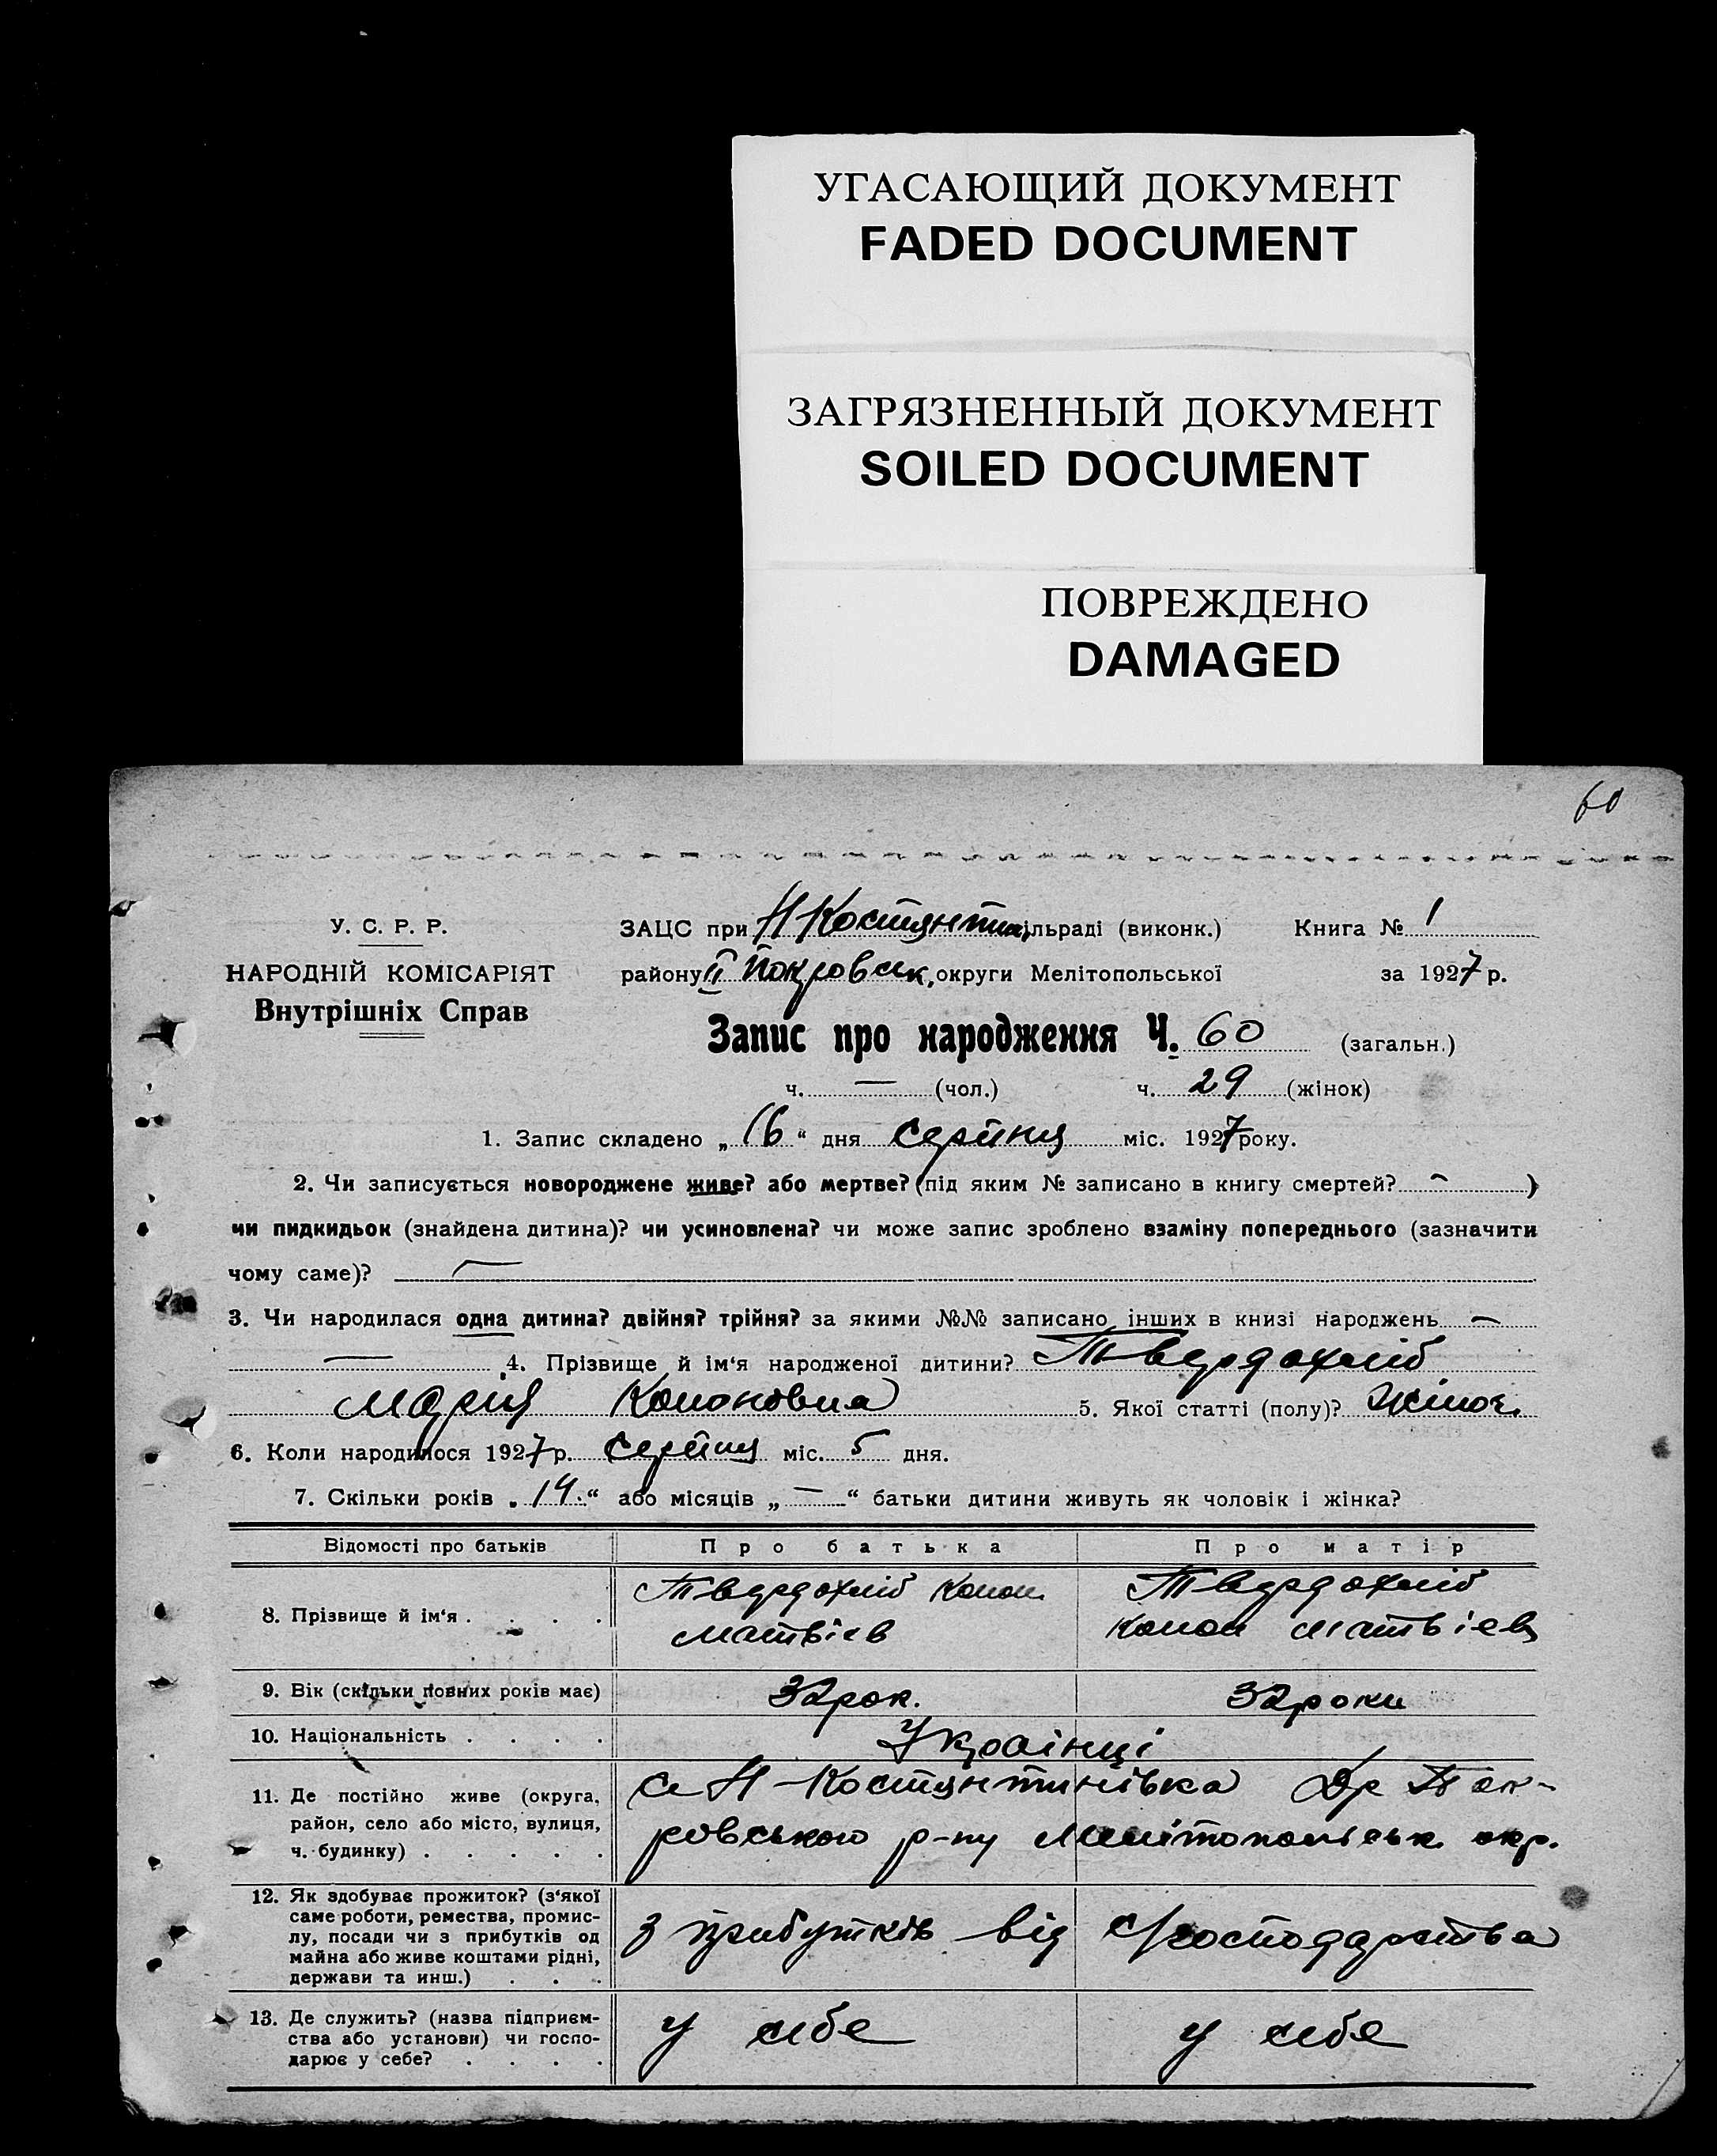 УГАСАЮЩИЙ ДОКУМЕНТ
FADED DOCUMENT
ЗАГРЯЗНЕННЫЙ ДОКУМЕНТ
SOILED DOCUMENT
ПОВРЕЖДЕНО
DAMAGED
60
У. С. Р. Р.
НАРОДНІЙ КОМІСАРІЯТ
Внутрішніх Справ
ЗАЦС при Н Костянтин. сільраді (виконк.) Книга № 1
району ІІ Покровськ. округи Мелітопольської за 1927 р.
Запис про народження Ч. 60 (загальн.)
ч. — (чол.) ч. 29 (жінок)
1. Запис складено „16“ дня серпня міс. 1927 року.
2. Чи записується новороджене живе? або мертве? (під яким № записано в книгу смертей? — )
чи пидкидьок (знайдена дитина)? чи усиновлена? чи може запис зроблено взаміну попереднього (зазначити
чому саме)? —
3. Чи народилася одна дитина? двійня? трійня? за якими №№ записано інших в книзі народжень —
— 4. Прізвище й ім‘я народженої дитини? Твердохліб
Марія Кононовна 5. Якої статті (полу)? Жіноч.
6. Коли народилося 1927 р. серпня міс. 5 дня.
7. Скільки років „14.“ або місяців „—“ батьки дитини живуть як чоловік і жінка?
Відомості про батьків Про батька Про матір
8. Прізвище й ім‘я . . . . Твердохліб Конон Матвієв Твердохліб Конон Матвієв
9. Вік (скільки повних років має) 32 рок. 32 роки
10. Національність . . . . Українці
11. Де постійно живе (округа,
район, село або місто, вулиця,
ч. будинку) . . . . .
с Н-Костянтинівка Др Пок-
ровського р-ну Мелітопольськ окр.
12. Як здобуває прожиток? (з‘якої
саме роботи, ремества, промис-
лу, посади чи з прибутків од
майна або живе коштами рідні,
держави та инш.) . . .
з прибутків від с/господарства
13. Де служить? (назва підприєм-
ства або установи) чи госпо-
дарює у себе? . . . .
у себе у себе